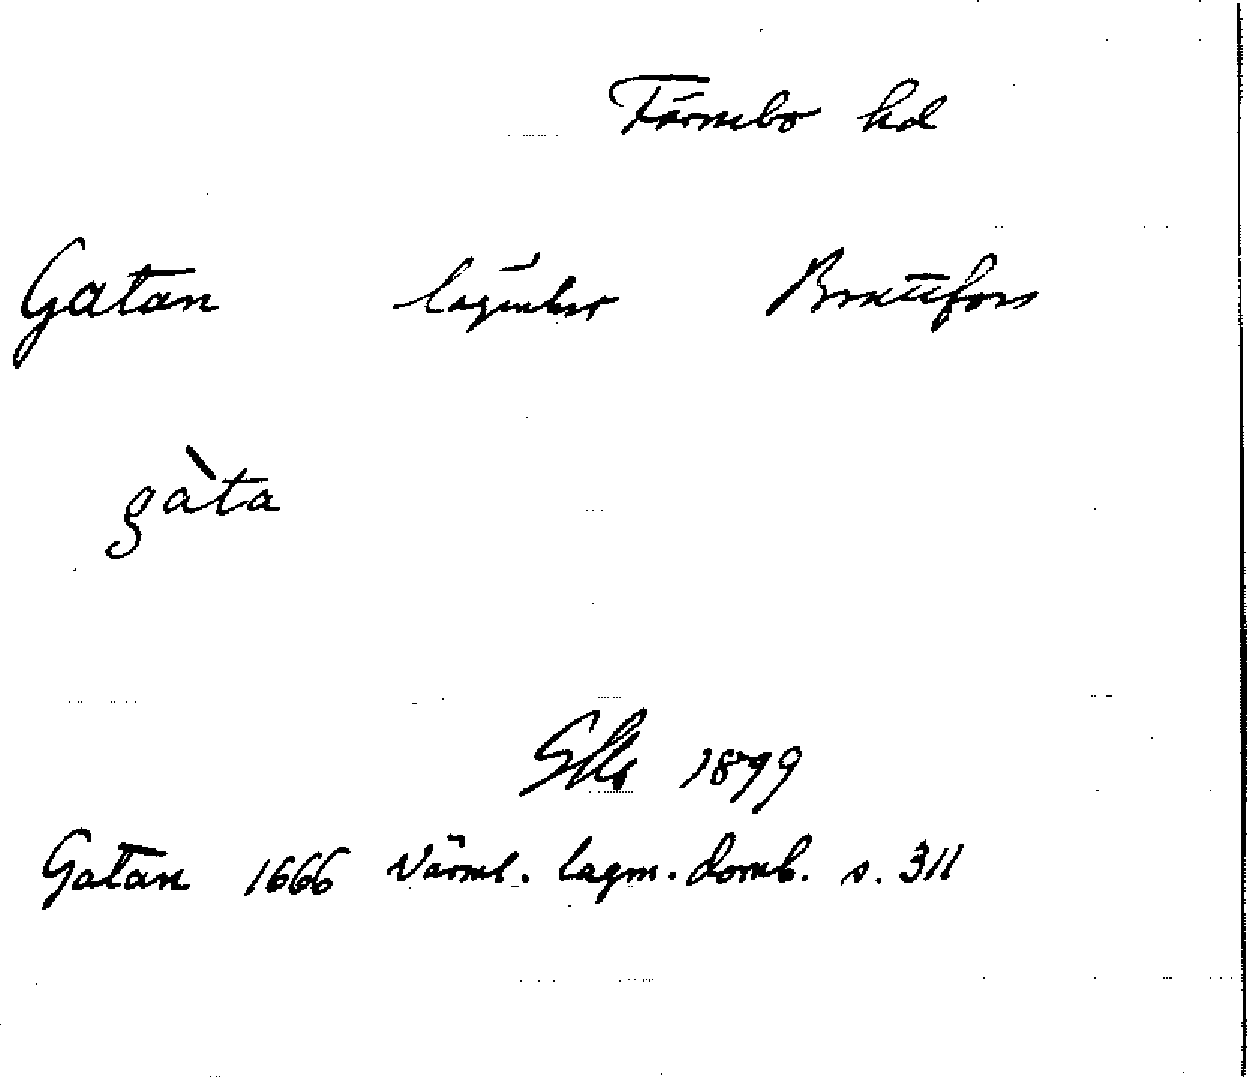 Färnebo hd
Gatan lägenhet Brattfors
gàta
1899
Gatan 1666 Värml. lagm. domb. s. 311